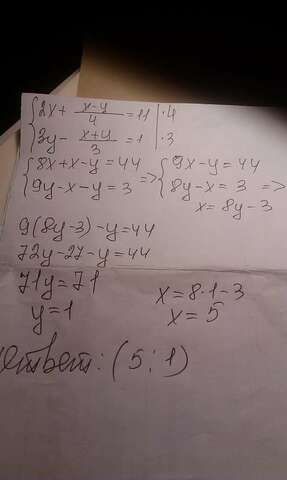 {2x + (x-y)/4 = 11 | ·4
{3y - (x+y)/3 = 1 | ·3
{8x + x - y = 44 => {9x - y = 44
{9y - x - y = 3 {8y - x = 3 =>
x = 8y - 3
9(8y-3) - y = 44
72y - 27 - y = 44
71y = 71 x = 8·1 - 3
y = 1 x = 5
Ответ: (5; 1)